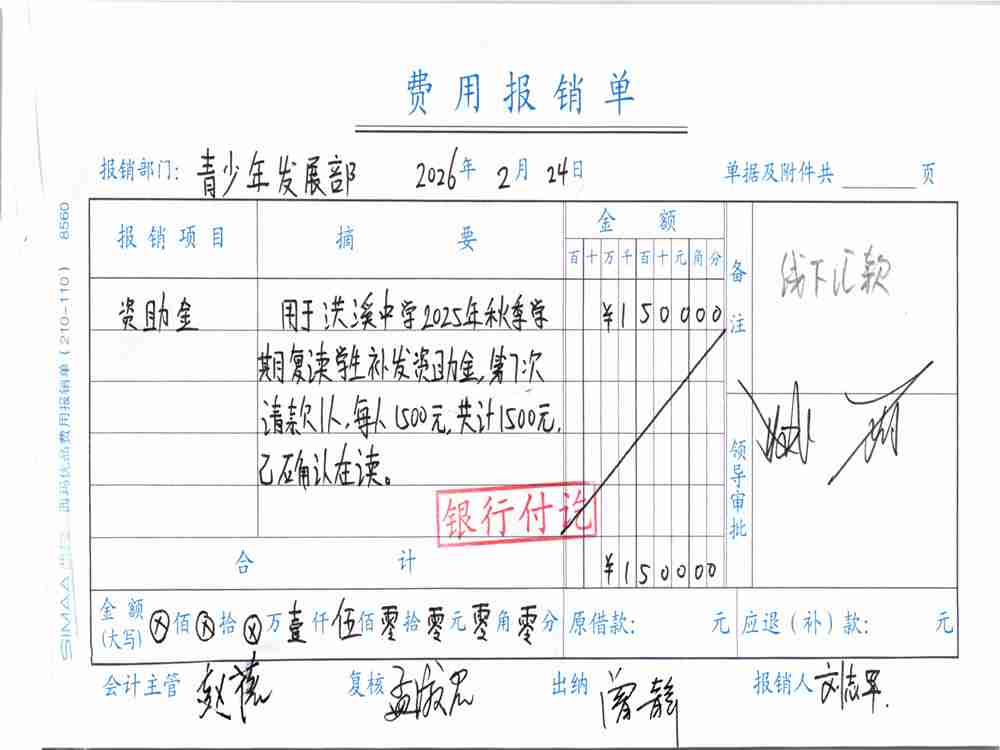 费用报销单
报销部门: 青少年发展部 2026年 2月 24日 单据及附件共 页
报销项目 摘要 金额 备注 线下汇款
百十万千百十元角分
资助金 用于洪溪中学2025年秋季学 ¥150000
期复读学生补发资助金,第7次
请款1人,每人1500元,共计1500元.
已确认在读。
银行付讫
领导审批
合计 ¥150000
金额(大写) ⊗佰⊗拾⊗万壹仟伍佰零拾零元零角零分 原借款: 元 应退(补)款: 元
会计主管 复核 出纳 曾静 报销人 刘志军
SIMAA 西玛优品费用报销单(210-110) 8560